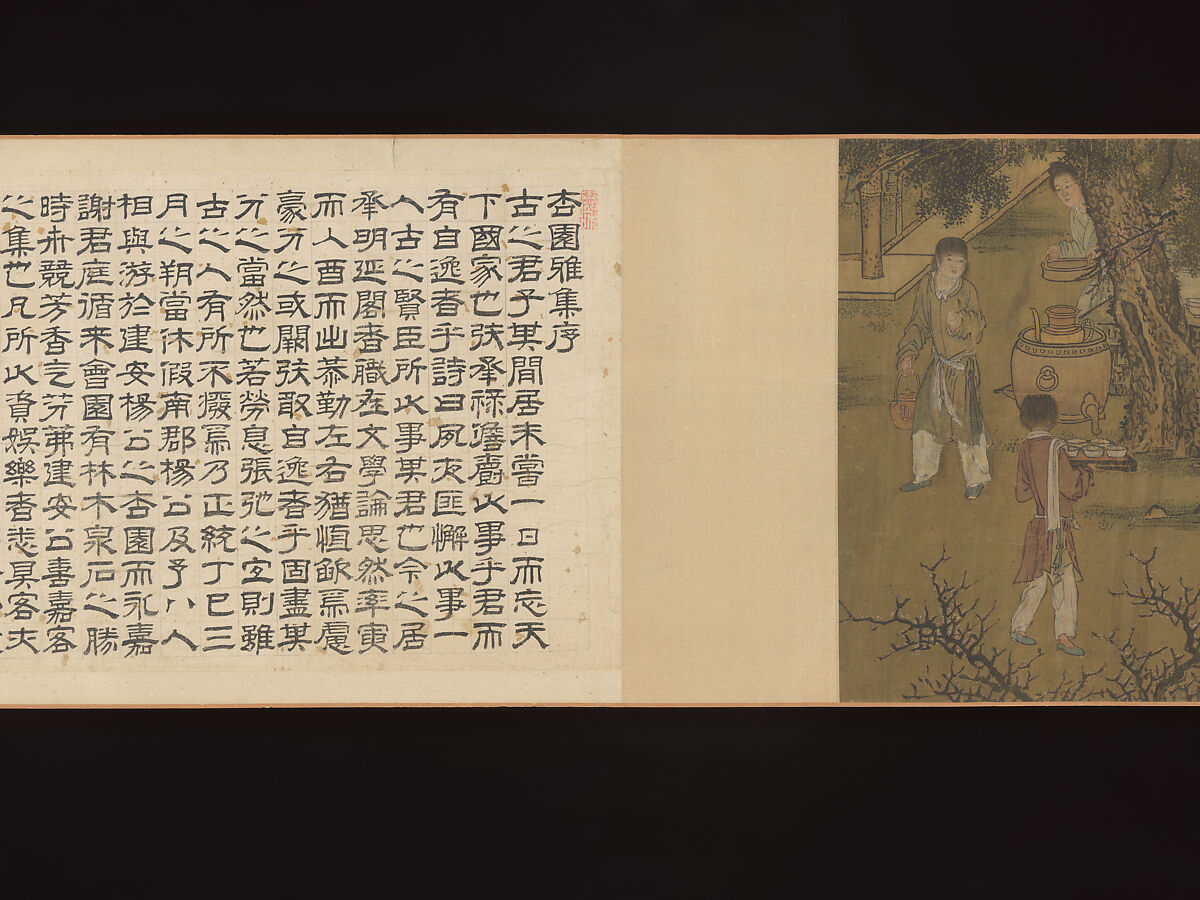 杏園雅集序
古之君子其閒居未嘗一日而忘天
下國家也矧承祿儋爵以事乎君而
有自逸者乎詩曰夙夜匪懈以事一
人古之賢臣所以事其君也今之居
承明延閣者職在文學論思然率寅
而入酉而出恭勤左右猶恒歉焉慮
豪分之或闕矧敢自逸者乎固盡其
分之當然也若勞息張弛之宜則雖
古之人有所不廢焉乃正統丁巳三
月之朔當休假南郡楊公及予八人
相與游於建安楊公之杏園而永嘉
謝君庭循來會園有林木泉石之勝
時卉競芳香气芬茀建安公喜嘉客
之集也凡所以資娛樂者悉具客